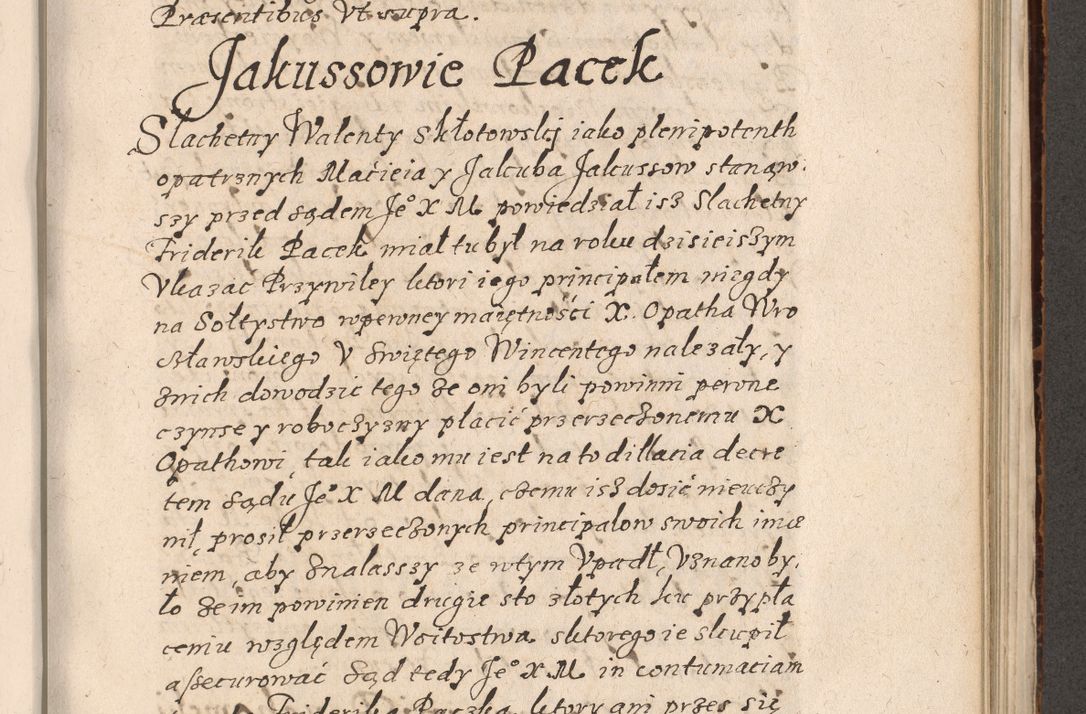 Præsentibus Vt supra.
Jakussowie Pacek
Slachetny Walenty Skłotowskij iako plenipotenth
opatrznych Macieia y Jakuba Jakussow stanąw.
szy przed sądem Je° X M powiedział isz Slachetny
Friderik Pacek miał tu był na roku dzisieiszym
Vkazać Przywiley ktori iego principałem niegdy
na Sołtystwo wpewney maiętności X. Opatha Wro
cławskiego V Swiętego Wincentego należały, y
znich dowodzic tego że oni byli powinni pewne
czynsze y roboczyzny płacić przerzeczonemu X
Opathowi, tak iako mu iest na to dillacia decre
tem Sądu Je° X M dana, czemu isz dosić nieuczy
nił, prosił przerzeczonych principalow swoich imie
niem, aby znalasszy ze wtym Vpadł, Vznano by.
ło że im powinien drugie sto złotych ku przypła
ceniu względem Woitostwa sktorego ie skupił
assecurować Sąd tedy Je° X M in contumaciam
Friderika Paczka, ktory ani przes się